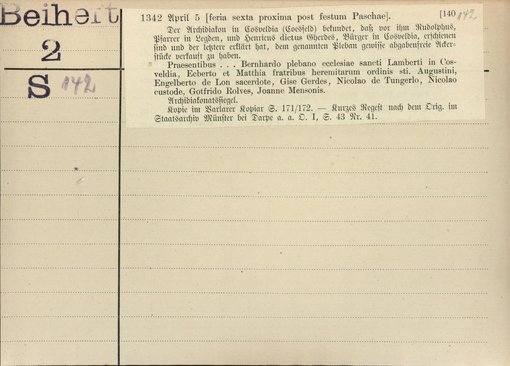 Beiheft
2
S 142
1342 April 5 [feria sexta proxima post festum Paschae]. [140 142
Der Archidiakon in Cosveldia (Coesfeld) bekundet, daß vor ihm Rudolphus,
Pfarrer in Legden, und Henricus dictus Gherdes, Bürger in Cosveldia, erschienen
sind und der letztere erklärt hat, dem genannten Pleban gewisse abgabenfreie Acker-
stücke verkauft zu haben.
Praesentibus . . . Bernhardo plebano ecclesiae sancti Lamberti in Cos-
veldia, Ecberto et Matthia fratribus heremitarum ordinis sti. Augustini,
Engelberto de Lon sacerdote, Gise Gerdes, Nicolao de Tungerlo, Nicolao
custode, Gotfrido Rolves, Joanne Mensonis.
Archidiakonatssiegel.
Kopie im Varlarer Kopiar S. 171/172. — Kurzes Regest nach dem Orig. im
Staatsarchiv Münster bei Darpe a. a. O. I, S. 43 Nr. 41.